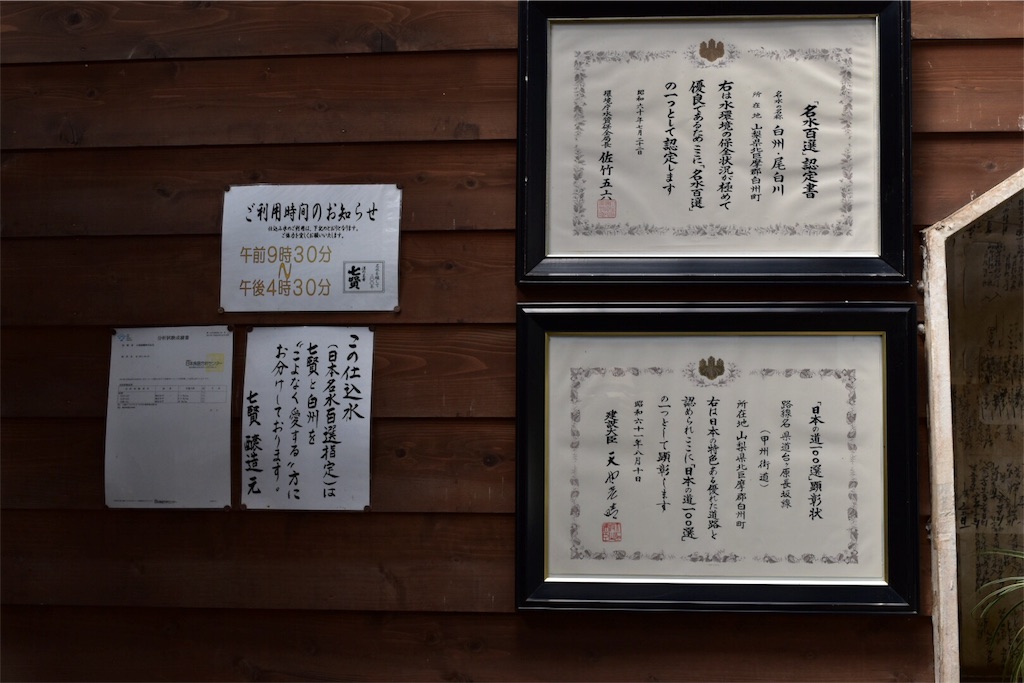 「名水百選」認定書
名水の名称 白州・尾白川
所在地 山梨県北巨摩郡白州町
右は水環境の保全状況が極めて
優良であるためここに「名水百選」
の一つとして認定します
昭和六十年七月二十二日
環境庁水質保全局長 佐竹五六
「日本の道一〇〇選」顕彰状
路線名 県道台ヶ原長坂線
（甲州街道）
所在地 山梨県北巨摩郡白州町
右は日本の特色ある優れた道路と
認められここに「日本の道一〇〇選」
の一つとして顕彰します
昭和六十一年八月十日
建設大臣
ご利用時間のお知らせ
仕込み水のご利用は、下記のとおりとなります。
ご協力を宜しくお願いいたします。
午前9時30分
〜
午後4時30分
七賢
この仕込水
（日本名水百選指定）は
七賢と白州を
“こよなく愛する”方に
お分けしております。
七賢 醸造元
分析試験成績書